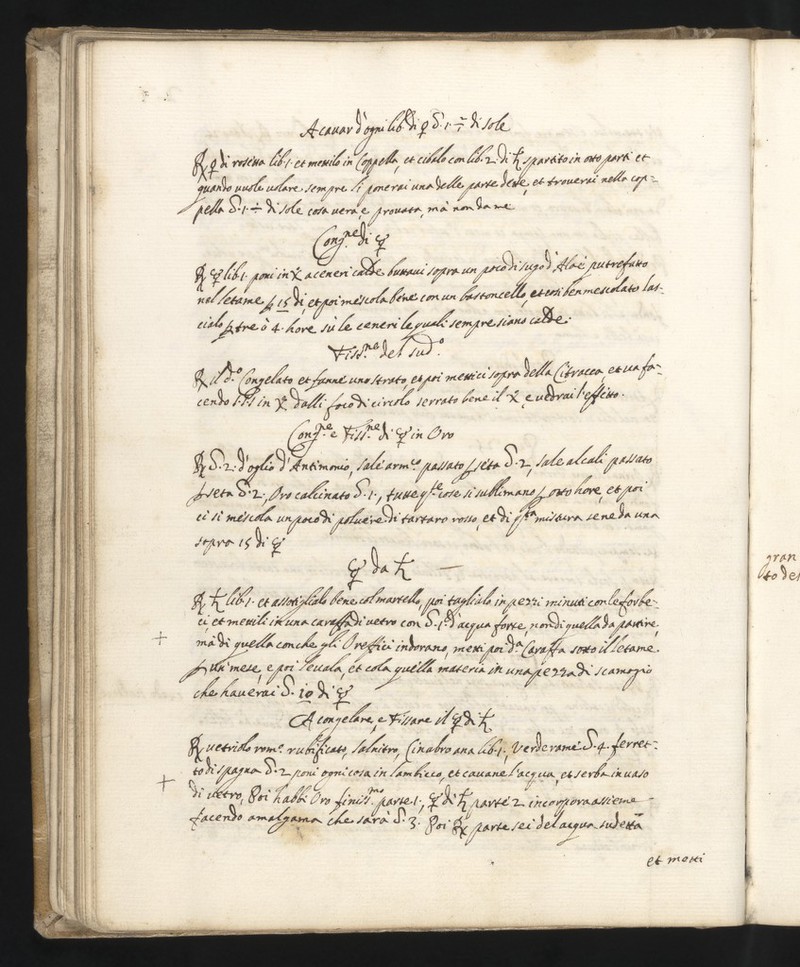 A cavar d'ogni lib. di ♀ S. 1. ÷ di sole
℞ ♀ di rosetta lib. 1. et mettilo in Coppella, et cibalo con lib. 2. di ♄ spartito in otto parti et
quando vuole volare sempre li ponerai una delle parte dette, et troverai nella cop=
pella S. 1. ÷ di sole cosa vera, e provata, mà non da me
Cong.ne di ☿
℞ ☿ lib. 1. poni in a ceneri calde buttavi sopra un poco di sugo d'Aloè putrefatto
nel letame p 15 dì, et poi mescola bene con un bastoncello, et così ben mescolato las=
cialo p tre ò 4. hore sù le ceneri le quali sempre siano calde:
Fiss.ne del sud.o
℞ il d.o Congelato et fanne uno strato, et poi mettici sopra della Citracca et va fa=
cendo s.s.s in dalli foco di circolo serrato bene il e vedrai l'effetto.
Cong.ne e Fiss.ne di ☿ in Oro
℞ S. 2: d'oglio d'Antimonio, sale arm.co passato p seta S. 2, sale alcali passato
p seta S. 2:, Oro calcinato S. 1:, tutte q.ste cose si sullimano p otto hore, et poi
ci si mescola un poco di polvere di tartaro rosso, et di q.sta mistura se ne da una
sopra 15 di ☿
☿ da ♄ —
℞ ♄ lib. 1. et assottiglialo bene col martello, poi taglialo in pezzi minuti con le forbe=
ci, et mettili in una caraffa di vetro con S. 1. d'acqua forte, non di quella da partire,
+ mà di quella con che gli Orefici indorano, metti poi d.a Caraffa sotto il letame
p un mese, e poi levala, et cola quella materia in una pezza di scamozio
che haverai S. 10 di ☿
A congelare, e Fissare il ☿ di ♄
℞ vetriolo rom.o rubificato, salnitro, Cinabro ana lib. 1:, Verderame S. 4. ferret=
to di spagna S. 2 poni ogni cosa in lambicco, et cavane l'acqua, et serba in vaso
+ di vetro, Poi habbi Oro finiss.mo parte 1., ☿ di ♄ parte 2 incorpora assieme
facendo amalgama che sarà S. 3. Poi ℞ parte sei del acqua sudetta
et metti
gran
to del